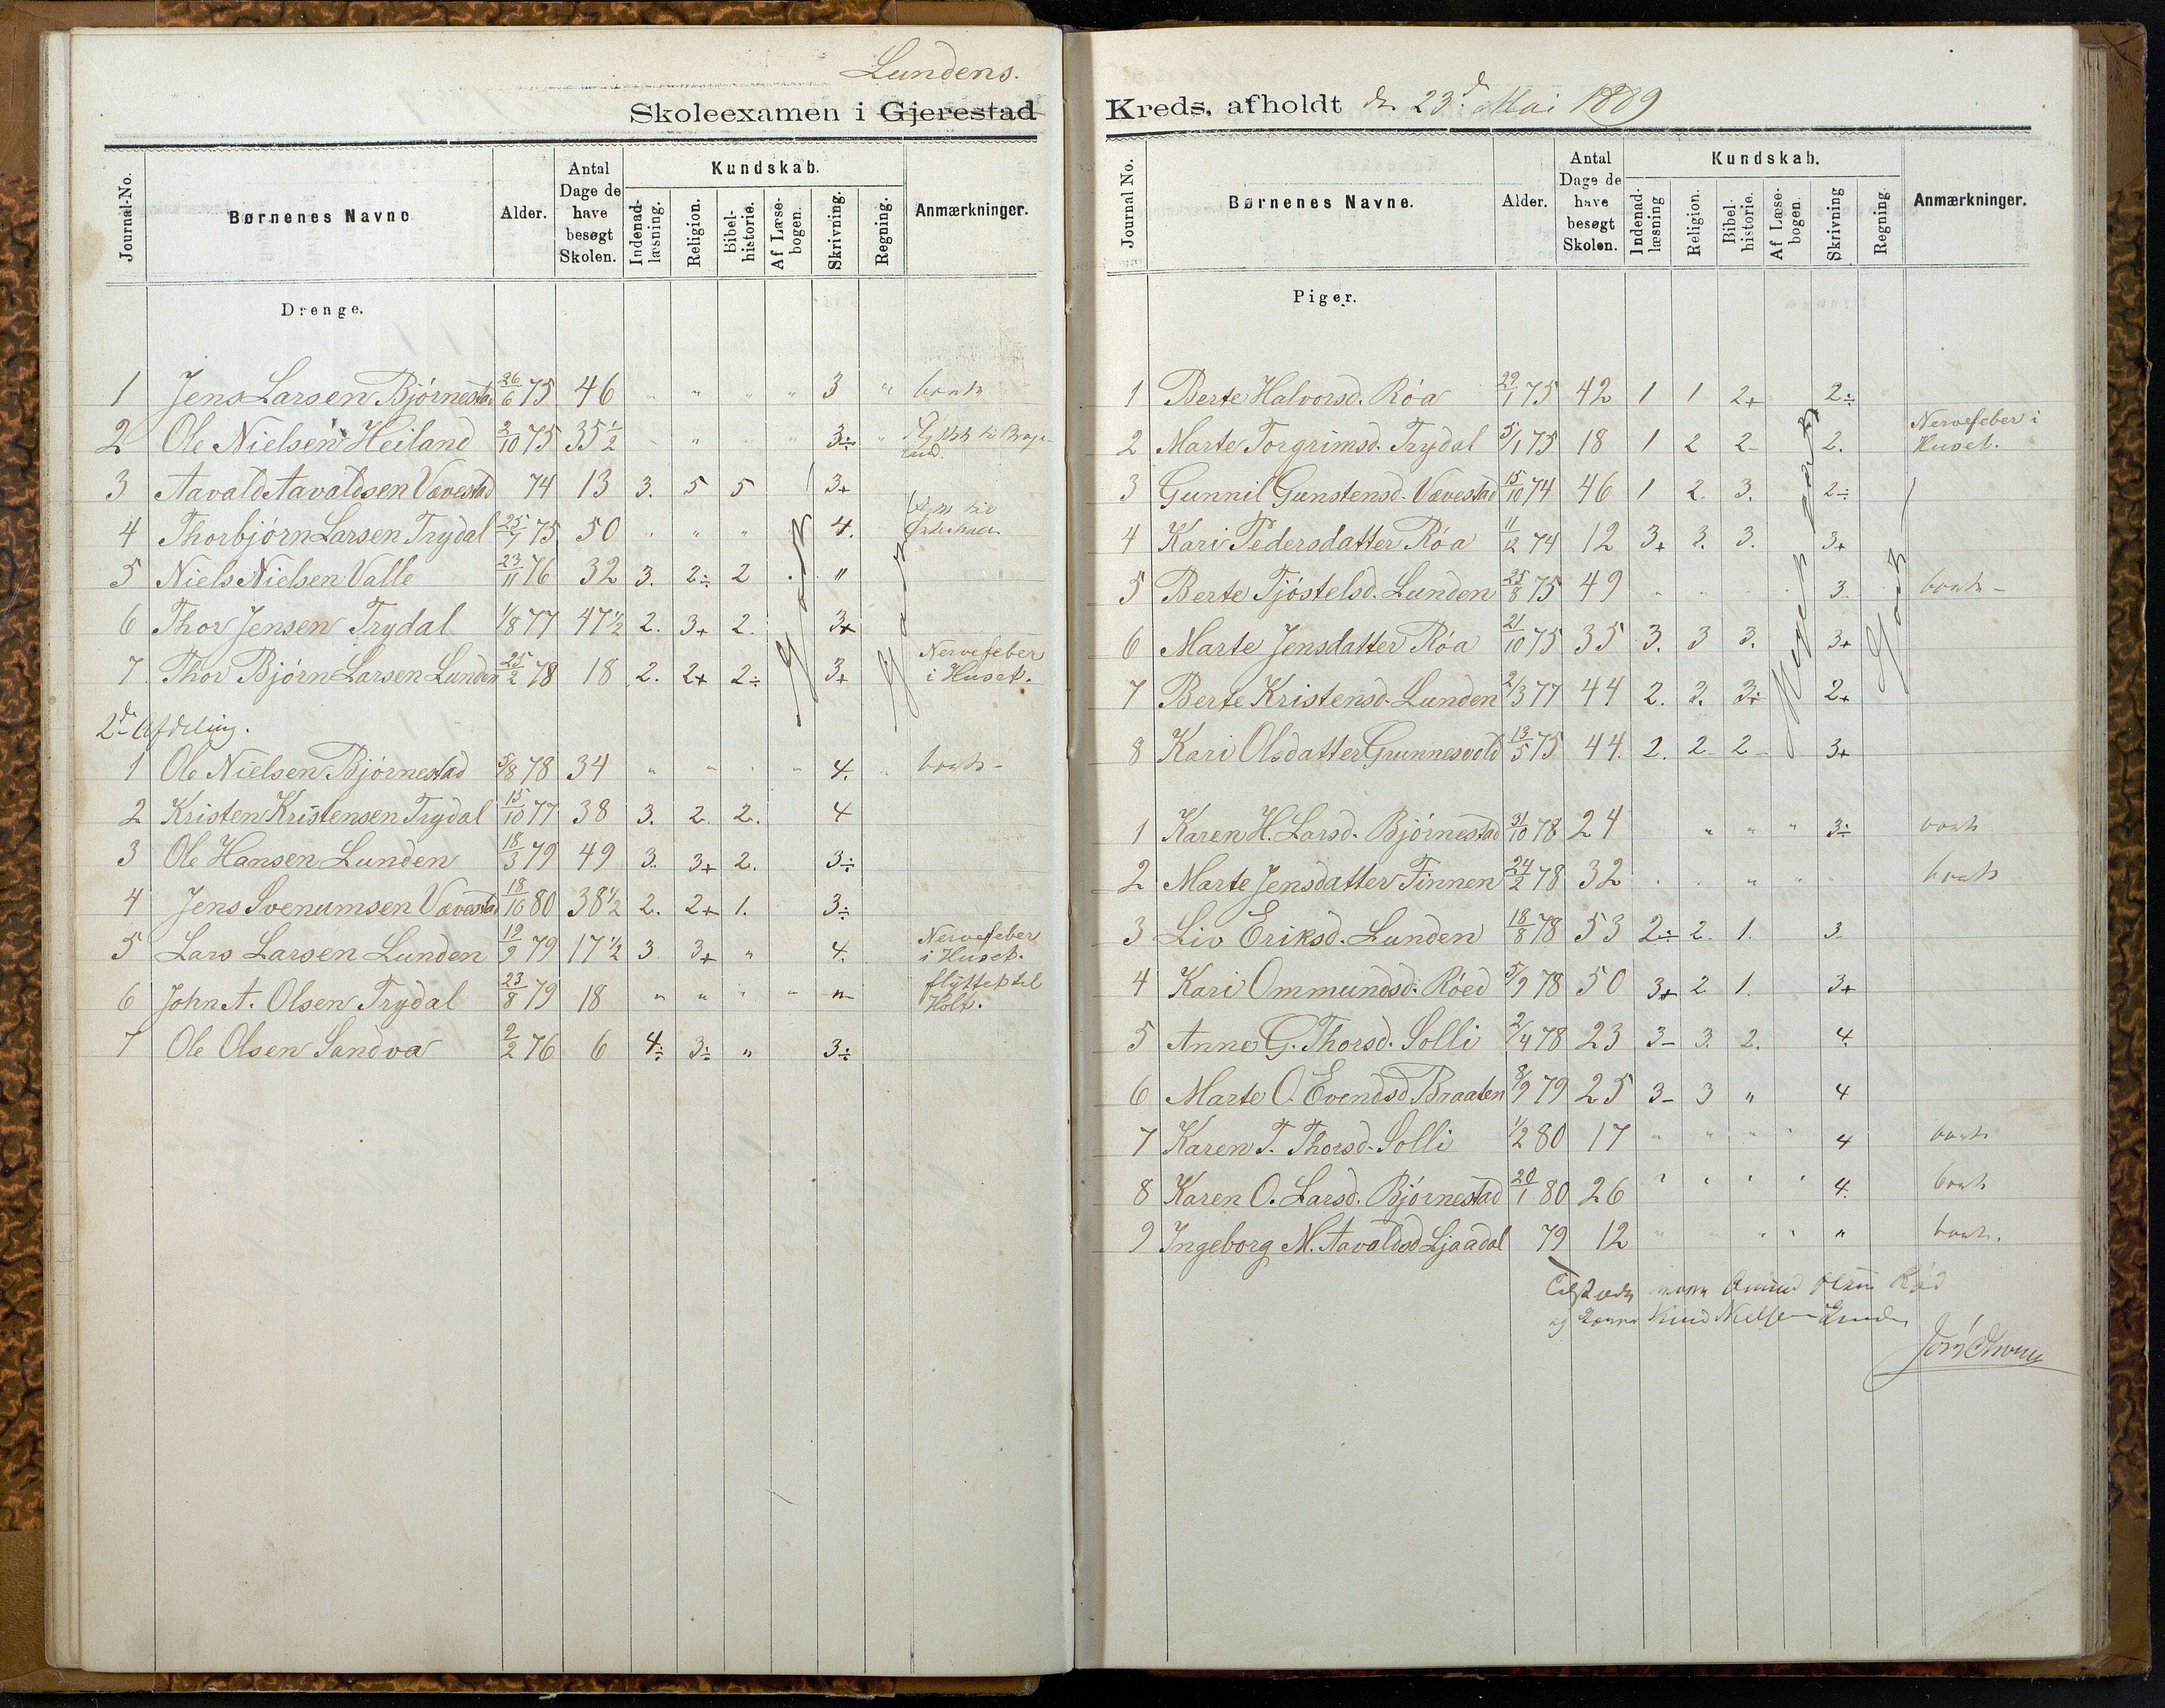 Lundens.
Skoleexamen i Gjerestad
Journal-No.
Børnenes Navne
Alder.
Antal Dage de have besøgt Skolen.
Kundskab.
Indenad-læsning.
Religion.
Bibel-historie.
Af Læse-bogen.
Skrivning.
Regning.
Anmærkninger.
Drenge.
1 Jens Larsen Bjórnestad 26/6 75 46 " " " " 3 " borte
2 Ole Nielsen Heiland 2/10 75 35½ " " " 3÷ "
3 Aavald Aavaldsen Vævestad 74 13 3. 5 5 3+
4 Thorbjórn Larsen Trydal 25/7 75 50 " " " 4.
5 Niels Nielsen Valle 23/11 76 32 3. 2÷ 2 "
6 Thor Jensen Trydal 1/8 77 47½ 2. 3+ 2. 3+
7. Thor Bjórn Larsen Lunden 25/2 78 18 2. 2+ 2÷ 3+ Nervefeber i Huset.
godt
godt
2d Afdeling.
1 Ole Nielsen Bjórnestad 5/8 78 34 " " " " 4. " borte
2 Kristen Kristensen Trydal 15/10 77 38 3. 2. 2. 4
3 Ole Hansen Lunden 18/3 79 49 3. 3+ 2. 3÷
4 Jens Svenumsen Vævestad 18/10 80 38½ 2. 2+ 1. 3÷
5 Lars Larsen Lunden 19/9 79 17½ 3 3+ " 4. Nervefeber i Huset.
6 John A. Olsen Trydal 23/8 79 18 " " " " " flyttet til Holt.
7 Ole Olsen Sandva 2/2 76 6 4÷ 3÷ " 3÷
Kreds, afholdt d. 23d Mai 1889
Journal No.
Børnenes Navne.
Alder.
Antal Dage de have besøgt Skolen.
Kundskab.
Indenad-læsning
Religion.
Bibel-historie.
Af Læse-bogen.
Skrivning
Regning.
Anmærkninger.
Piger.
1 Berte Halvorsd. Róa 29/1 75 42 1 1 2+ 2÷
2 Marte Torgrimsd. Trydal 5/1 75 18 1 2 2 2. Nervefeber i Huset.
3 Gunnil Gunstensd. Vævestad 15/10 74 46 1 2. 3. 2÷
4 Kari Pedersdatter Róa 11/12 74 12 3+ 3. 3. 3+
5 Berte Tjóstelsd. Lunden 25/8 75 49 " " " 3 borte
6 Marte Jensdatter Róa 21/10 75 35 3. 3 3. 3+
7 Berte Kristensd. Lunden 2/3 77 44 2. 3. 3÷ 2+
8 Kari Olsdatter Grunnesvold 13/5 75 44. 2. 2 2 3+
Meget godt
Godt
1 Karen H. Larsd. Bjórnestad 31/10 78 24 " " " 3÷ borte
2 Marte Jensdatter Finnen 24/2 78 32 " " " " borte
3 Liv Eriksd. Lunden 18/8 78 53 2÷ 2. 1. 3
4 Kari Ommundsd. Róed 5/9 78 50 3+ 2 1. 3+
5 Anne G. Thorsd. Solli 2/4 78 23 3- 3. 2. 4.
6 Marte O. Evendsd Braaten 3/9 79 25 3- 3 " 4
7 Karen T. Thorsd. Solli 1/2 80 17 " " " " 4 borte
8 Karen O. Larsd. Bjórnestad 20/1 80 26 " " " " 4. borte
9 Ingeborg M. Aavaldsd Ljaadal 79 12 " " " " " borte.
Tilstede vare Omund OlsenRód
og Knud Nielsen Lunden